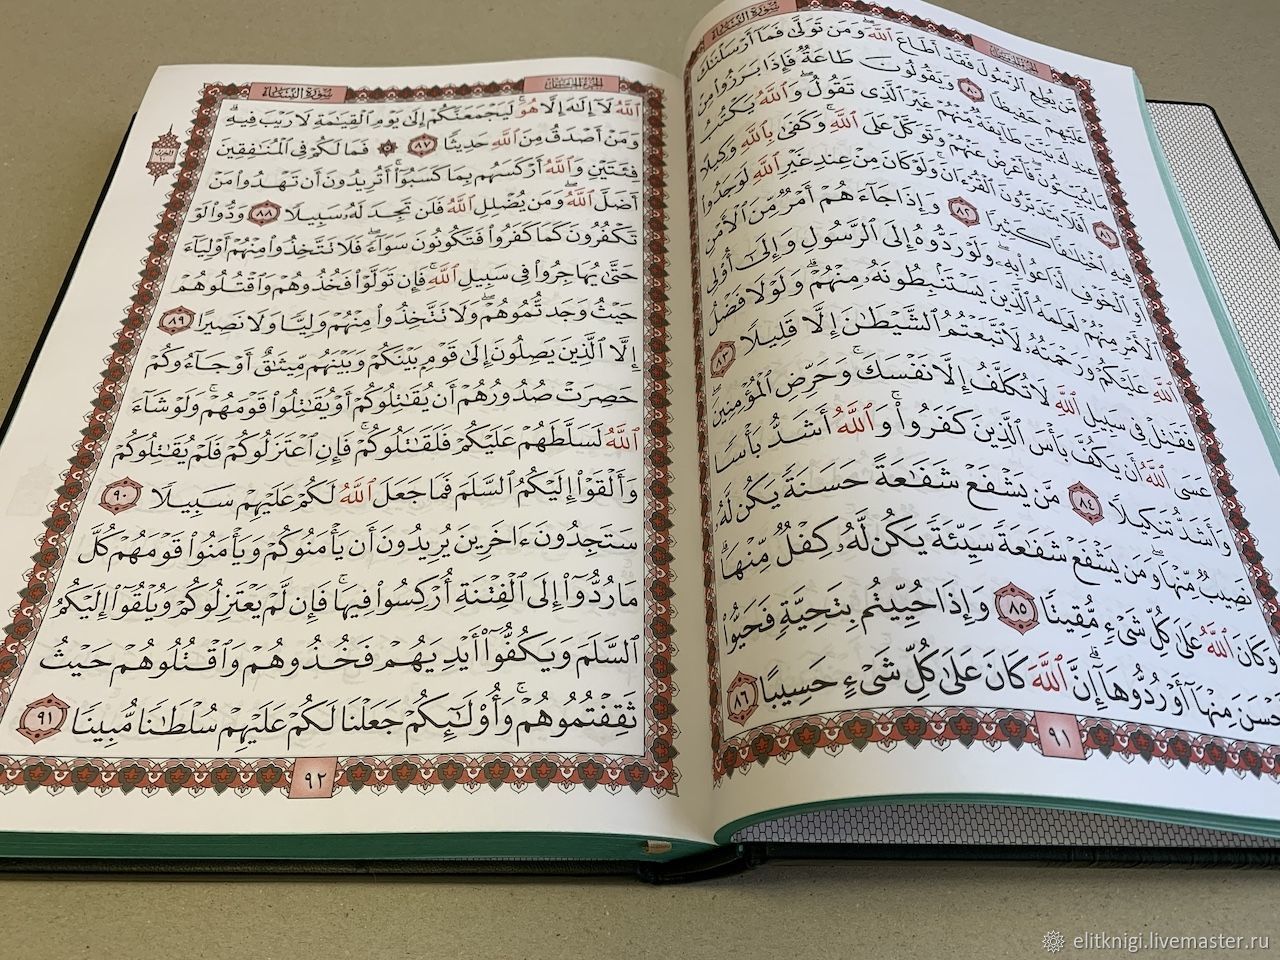 سُورَةُ النِّسَاءِ
الجزء الخامس
مَّن يُطِعِ ٱلرَّسُولَ فَقَدْ أَطَاعَ ٱللَّهَ وَمَن تَوَلَّىٰ فَمَآ أَرْسَلْنَٰكَ
عَلَيْهِمْ حَفِيظًا ٨٠ وَيَقُولُونَ طَاعَةٌ فَإِذَا بَرَزُوا۟ مِنْ
عِندِكَ بَيَّتَ طَآئِفَةٌ مِّنْهُمْ غَيْرَ ٱلَّذِى تَقُولُ وَٱللَّهُ يَكْتُبُ
مَا يُبَيِّتُونَ فَأَعْرِضْ عَنْهُمْ وَتَوَكَّلْ عَلَى ٱللَّهِ وَكَفَىٰ بِٱللَّهِ وَكِيلًا
٨١ أَفَلَا يَتَدَبَّرُونَ ٱلْقُرْءَانَ وَلَوْ كَانَ مِنْ عِندِ غَيْرِ ٱللَّهِ لَوَجَدُوا۟
فِيهِ ٱخْتِلَٰفًا كَثِيرًا ٨٢ وَإِذَا جَآءَهُمْ أَمْرٌ مِّنَ ٱلْأَمْنِ
أَوِ ٱلْخَوْفِ أَذَاعُوا۟ بِهِۦ وَلَوْ رَدُّوهُ إِلَى ٱلرَّسُولِ وَإِلَىٰٓ أُو۟لِى
ٱلْأَمْرِ مِنْهُمْ لَعَلِمَهُ ٱلَّذِينَ يَسْتَنۢبِطُونَهُۥ مِنْهُمْ وَلَوْلَا فَضْلُ
ٱللَّهِ عَلَيْكُمْ وَرَحْمَتُهُۥ لَٱتَّبَعْتُمُ ٱلشَّيْطَٰنَ إِلَّا قَلِيلًا ٨٣
فَقَٰتِلْ فِى سَبِيلِ ٱللَّهِ لَا تُكَلَّفُ إِلَّا نَفْسَكَ وَحَرِّضِ ٱلْمُؤْمِنِينَ
عَسَى ٱللَّهُ أَن يَكُفَّ بَأْسَ ٱلَّذِينَ كَفَرُوا۟ وَٱللَّهُ أَشَدُّ بَأْسًا
وَأَشَدُّ تَنكِيلًا ٨٤ مَّن يَشْفَعْ شَفَٰعَةً حَسَنَةً يَكُن لَّهُۥ
نَصِيبٌ مِّنْهَا وَمَن يَشْفَعْ شَفَٰعَةً سَيِّئَةً يَكُن لَّهُۥ كِفْلٌ مِّنْهَا
وَكَانَ ٱللَّهُ عَلَىٰ كُلِّ شَىْءٍ مُّقِيتًا ٨٥ وَإِذَا حُيِّيتُم بِتَحِيَّةٍ فَحَيُّوا۟
بِأَحْسَنَ مِنْهَآ أَوْ رُدُّوهَآ إِنَّ ٱللَّهَ كَانَ عَلَىٰ كُلِّ شَىْءٍ حَسِيبًا ٨٦
٩١
الجزء الخامس
سُورَةُ النِّسَاءِ
ٱللَّهُ لَآ إِلَٰهَ إِلَّا هُوَ لَيَجْمَعَنَّكُمْ إِلَىٰ يَوْمِ ٱلْقِيَٰمَةِ لَا رَيْبَ فِيهِ
وَمَنْ أَصْدَقُ مِنَ ٱللَّهِ حَدِيثًا ٨٧ ۞ فَمَا لَكُمْ فِى ٱلْمُنَٰفِقِينَ
فِئَتَيْنِ وَٱللَّهُ أَرْكَسَهُم بِمَا كَسَبُوٓا۟ أَتُرِيدُونَ أَن تَهْدُوا۟ مَنْ
أَضَلَّ ٱللَّهُ وَمَن يُضْلِلِ ٱللَّهُ فَلَن تَجِدَ لَهُۥ سَبِيلًا ٨٨ وَدُّوا۟ لَوْ
تَكْفُرُونَ كَمَا كَفَرُوا۟ فَتَكُونُونَ سَوَآءً فَلَا تَتَّخِذُوا۟ مِنْهُمْ أَوْلِيَآءَ
حَتَّىٰ يُهَاجِرُوا۟ فِى سَبِيلِ ٱللَّهِ فَإِن تَوَلَّوْا۟ فَخُذُوهُمْ وَٱقْتُلُوهُمْ
حَيْثُ وَجَدتُّمُوهُمْ وَلَا تَتَّخِذُوا۟ مِنْهُمْ وَلِيًّا وَلَا نَصِيرًا ٨٩
إِلَّا ٱلَّذِينَ يَصِلُونَ إِلَىٰ قَوْمٍۭ بَيْنَكُمْ وَبَيْنَهُم مِّيثَٰقٌ أَوْ جَآءُوكُمْ
حَصِرَتْ صُدُورُهُمْ أَن يُقَٰتِلُوكُمْ أَوْ يُقَٰتِلُوا۟ قَوْمَهُمْ وَلَوْ شَآءَ
ٱللَّهُ لَسَلَّطَهُمْ عَلَيْكُمْ فَلَقَٰتَلُوكُمْ فَإِنِ ٱعْتَزَلُوكُمْ فَلَمْ يُقَٰتِلُوكُمْ
وَأَلْقَوْا۟ إِلَيْكُمُ ٱلسَّلَمَ فَمَا جَعَلَ ٱللَّهُ لَكُمْ عَلَيْهِمْ سَبِيلًا ٩٠
سَتَجِدُونَ ءَاخَرِينَ يُرِيدُونَ أَن يَأْمَنُوكُمْ وَيَأْمَنُوا۟ قَوْمَهُمْ كُلَّ
مَا رُدُّوٓا۟ إِلَى ٱلْفِتْنَةِ أُرْكِسُوا۟ فِيهَا فَإِن لَّمْ يَعْتَزِلُوكُمْ وَيُلْقُوٓا۟ إِلَيْكُمُ
ٱلسَّلَمَ وَيَكُفُّوٓا۟ أَيْدِيَهُمْ فَخُذُوهُمْ وَٱقْتُلُوهُمْ حَيْثُ
ثَقِفْتُمُوهُمْ وَأُو۟لَٰٓئِكُمْ جَعَلْنَا لَكُمْ عَلَيْهِمْ سُلْطَٰنًا مُّبِينًا ٩١
٩٢
elitknigi.livemaster.ru